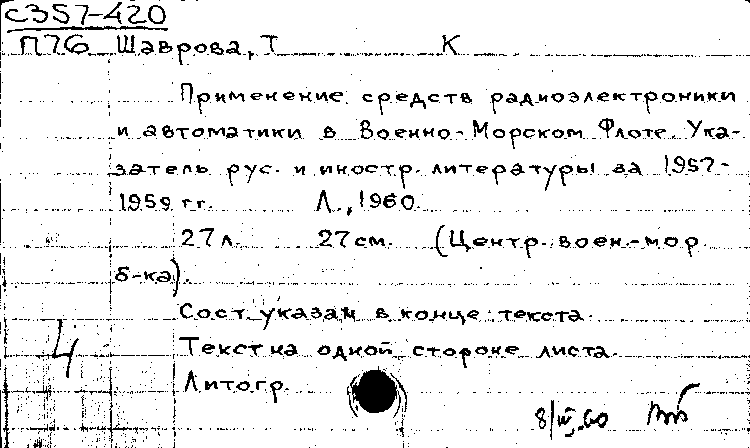 С357-420
П76 Шаврова, Т К
Применение средств радиоэлектроники
и автоматики в Военно-Морском Флоте. Ука-
затель рус. и иностр. литературы за 1957-
1959 гг. Л., 1960.
27 л. 27 см. (Центр. воен.-мор
б-ка).
Сост. указан в конце текста.
Текст на одной стороне листа.
4
Литогр.